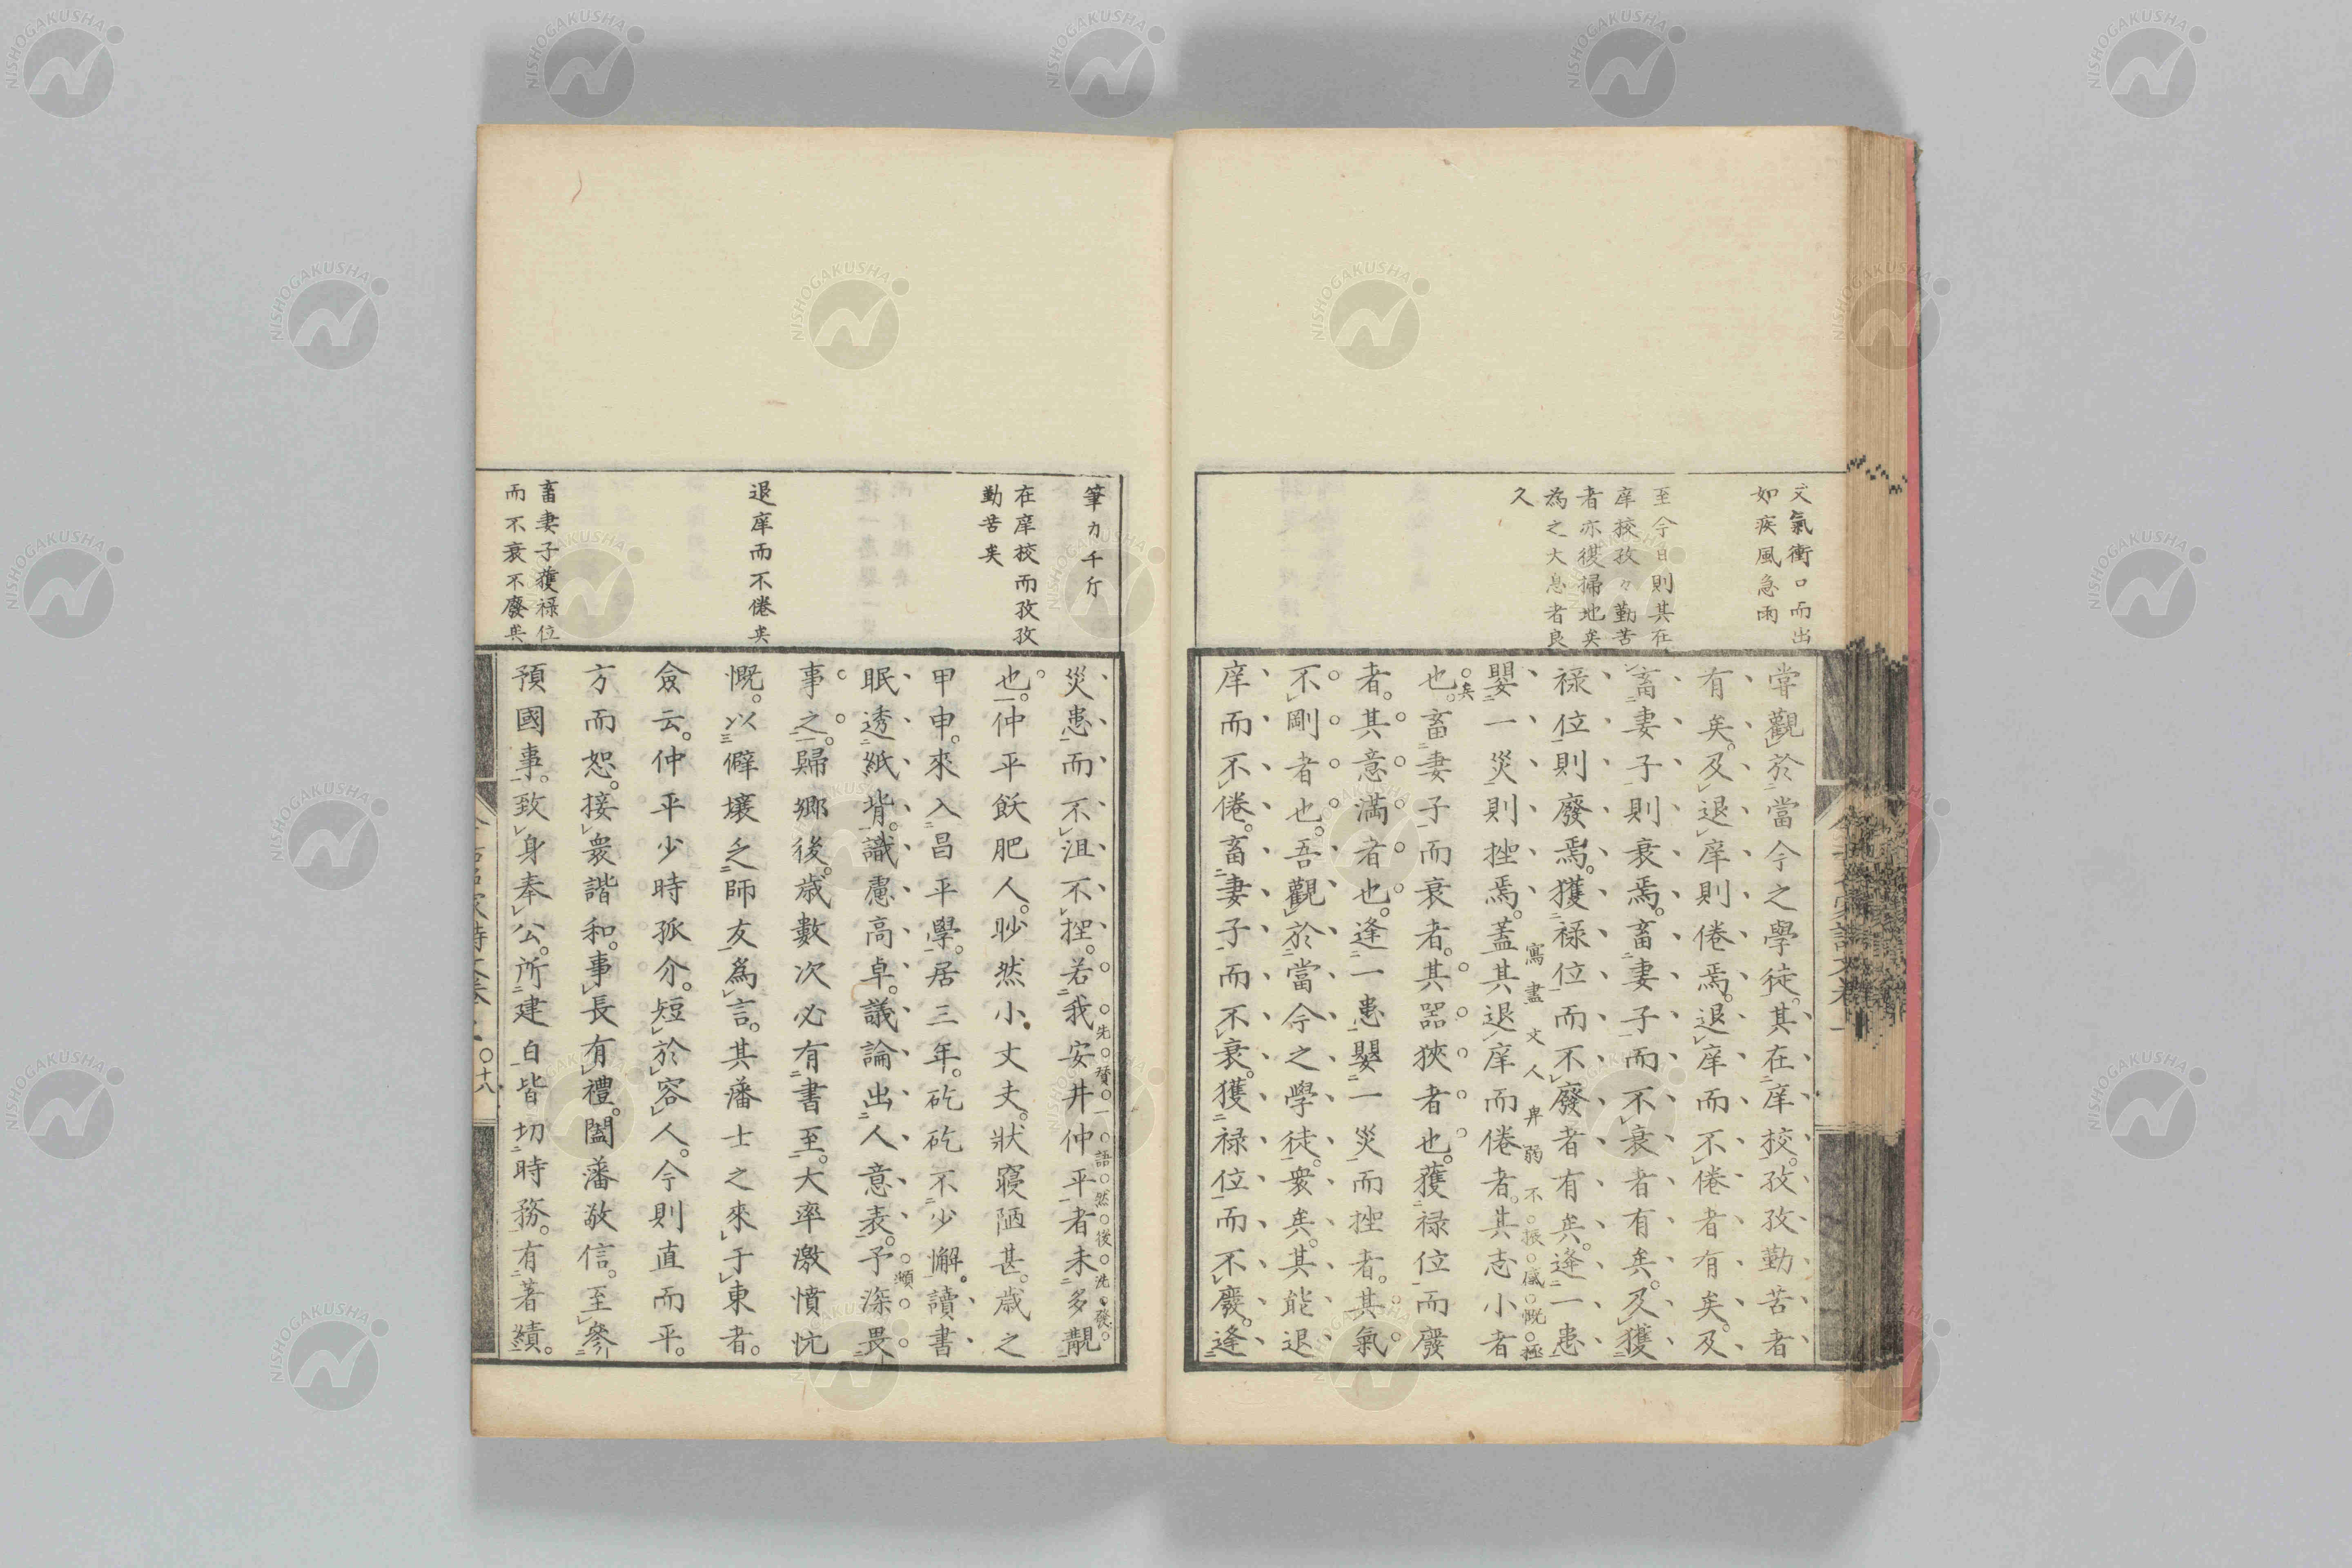 文氣衝口而出
如疾風急雨
至今日則其在
庠校孜々勤苦
者亦復掃地矣
為之大息者良
久
嘗觀於當今之學徒。其在庠校。孜孜勤苦者
有矣。及退庠則倦焉。退庠而不倦者有矣。及
畜妻子則衰焉。畜妻子而不衰者有矣。及獲
祿位則廢焉。獲祿位而不廢者有矣。逢一患
寫盡文人卑弱不振。感慨極
嬰一災則挫焉。蓋其退庠而倦者。其志小者
矣
也。畜妻子而衰者。其器狹者也。獲祿位而廢
者。其意滿者也。逢一患嬰一災而挫者。其氣
不剛者也。吾觀於當今之學徒。衆矣。其能退
庠而不倦。畜妻子而不衰。獲祿位而不廢。逢
筆力千斤
在庠校而孜孜
勤苦矣
退庠而不倦矣
畜妻子獲祿位
而不衰不廢矣
先贊一語然後洗發。
災患而不沮不挫。若我安井仲平者未多覯
也。仲平飫肥人。眇然小丈夫。狀寢陋甚。歲之
甲申。來入昌平學。居三年。矻矻不少懈。讀書
眠透紙背。識慮高卓。議論出人意表。予深畏
頻
事之。歸鄉後。歲數次必有書至。大率激憤忼
慨。以僻壤乏師友爲言。其藩士之來于東者。
僉云。仲平少時孤介。短於容人。今則直而平。
方而恕。接衆諧和。事長有禮。闔藩敬信。至參
預國事。致身奉公。所建白皆切時務。有著績。
十八
NISHOGAKUSHA